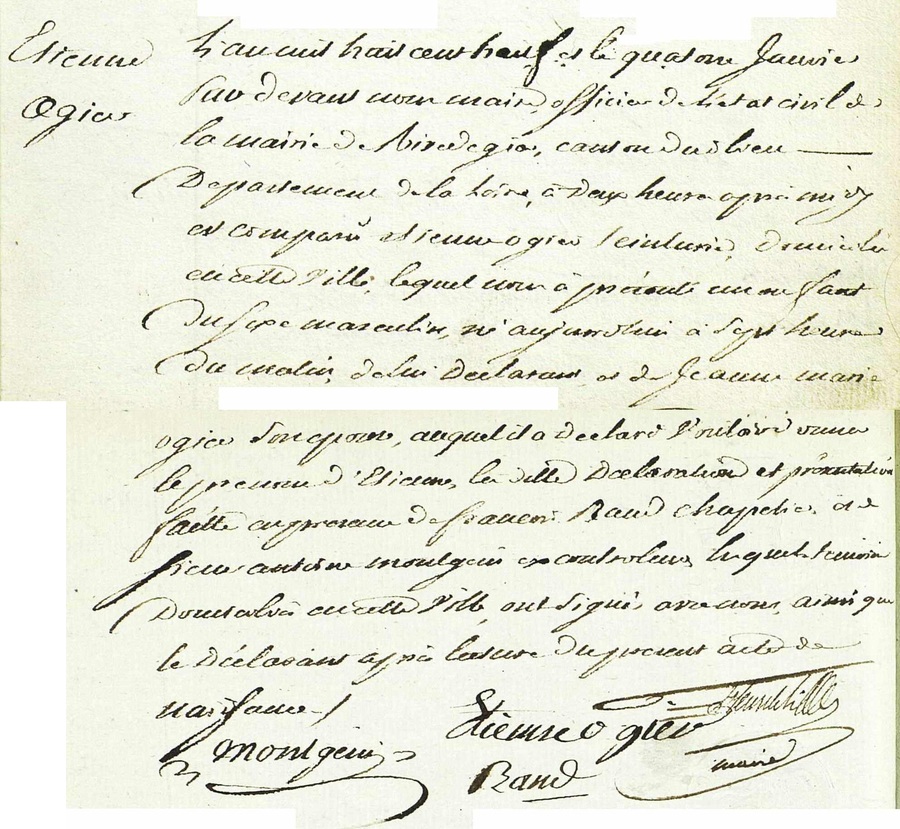 Etienne
Ogier
L'an mil huit cent neuf et le quatorze Janvier
Par devant nous maire, officier de l'etat civil de
la mairie de Rivedegier, canton dud. lieu
Departement de la Loire, à Deux heures après midy
est comparu etienne ogier teinturier, domicilié
en cette Ville, lequel nous à présenté un enfant
du sexe masculin, né aujourdhui à Sept heures
du matin, de lui Declarant et de Jeanne marie
ogier son epouse, auquel il a declaré Vouloir donner
le prenom d'Etienne, les dittes Déclaration et présentation
faitte en presence de françois Raud chapelier, et de
sieur antoine montgein ex controleur, lesquels temoins
Domiciliés en cette Ville, ont signé avec nous, ainsi que
le Déclarant après lecture du present acte de
naissance /
Etienne Ogier
montgein
Raud
maire